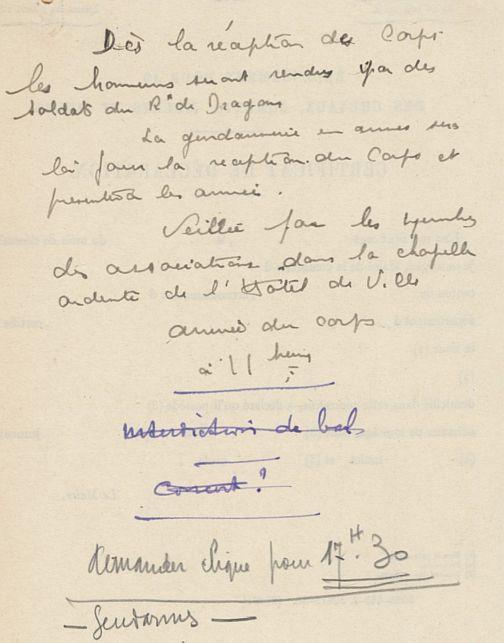 Dès la réception des Corps
les honneurs seront rendus par des
soldats du Rt de Dragons
La gendarmerie en armes sera
là pour la réception du Corps et
presentera les armes.
Veillée par les membres
des associations dans la chapelle
ardente de l'Hôtel de Ville
arrivée du corps
à 11 heures
Interdiction de bal
Concert?
demander clique pour 17H.30
— Gendarmes —